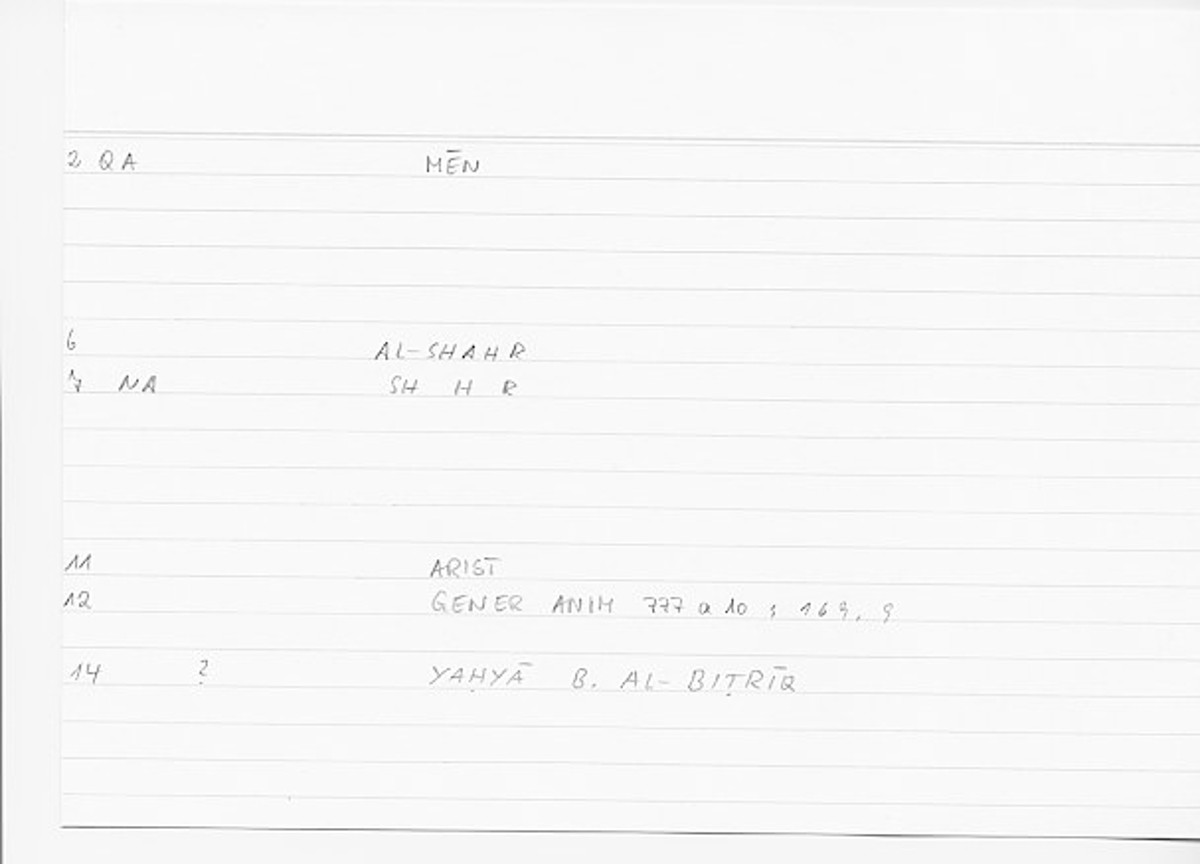 2 QA MĒN
6 AL-SHAHR
7 NA SH H R
11 ARIST
12 GENER ANIM 777 a 10 ; 169, 9
14 ? YAḤYĀ B. AL-BIṬRĪQ